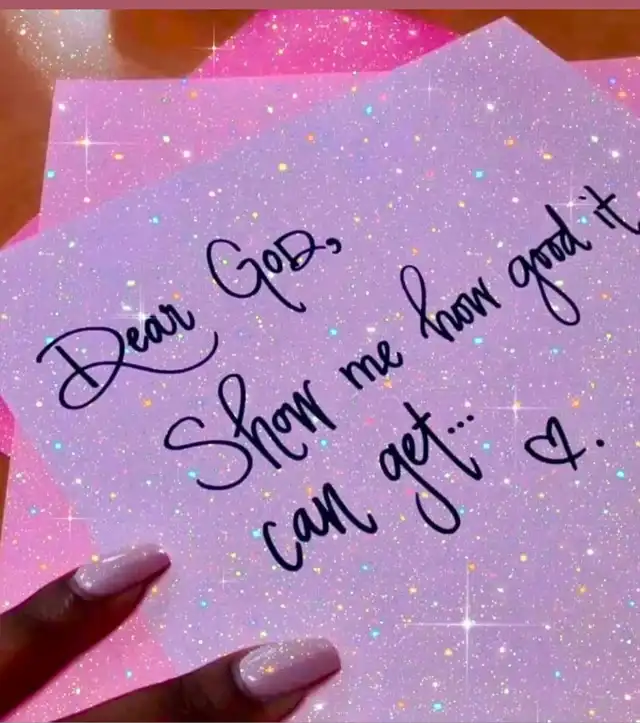 Dear God,
Show me how good it
can get...